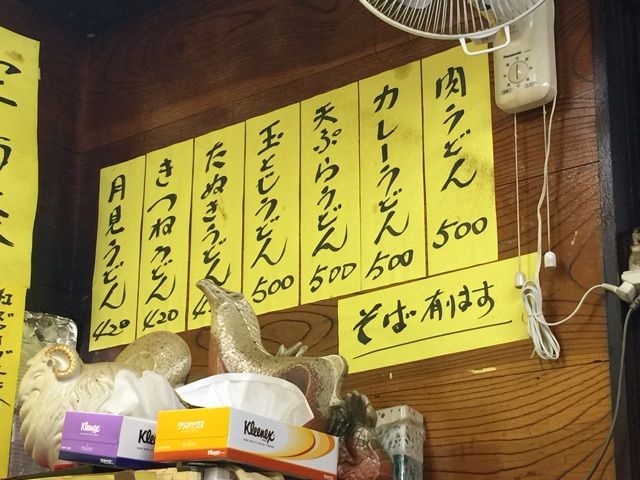 肉うどん 500
カレーうどん 500
天ぷらうどん 500
玉とじうどん 500
たぬきうどん
きつねうどん 420
月見うどん 420
そば有ります
Panasonic
Kleenex
クリネックス
Kleenex